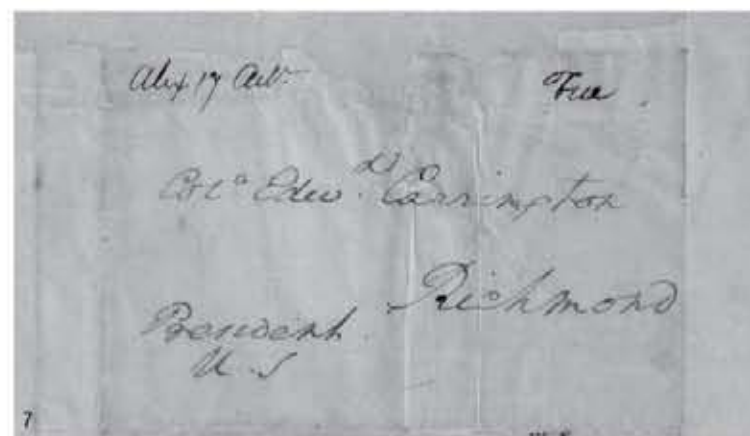 Alex 17 Free
Colo Edwd. Carrington
Richmond
President
U.S
7